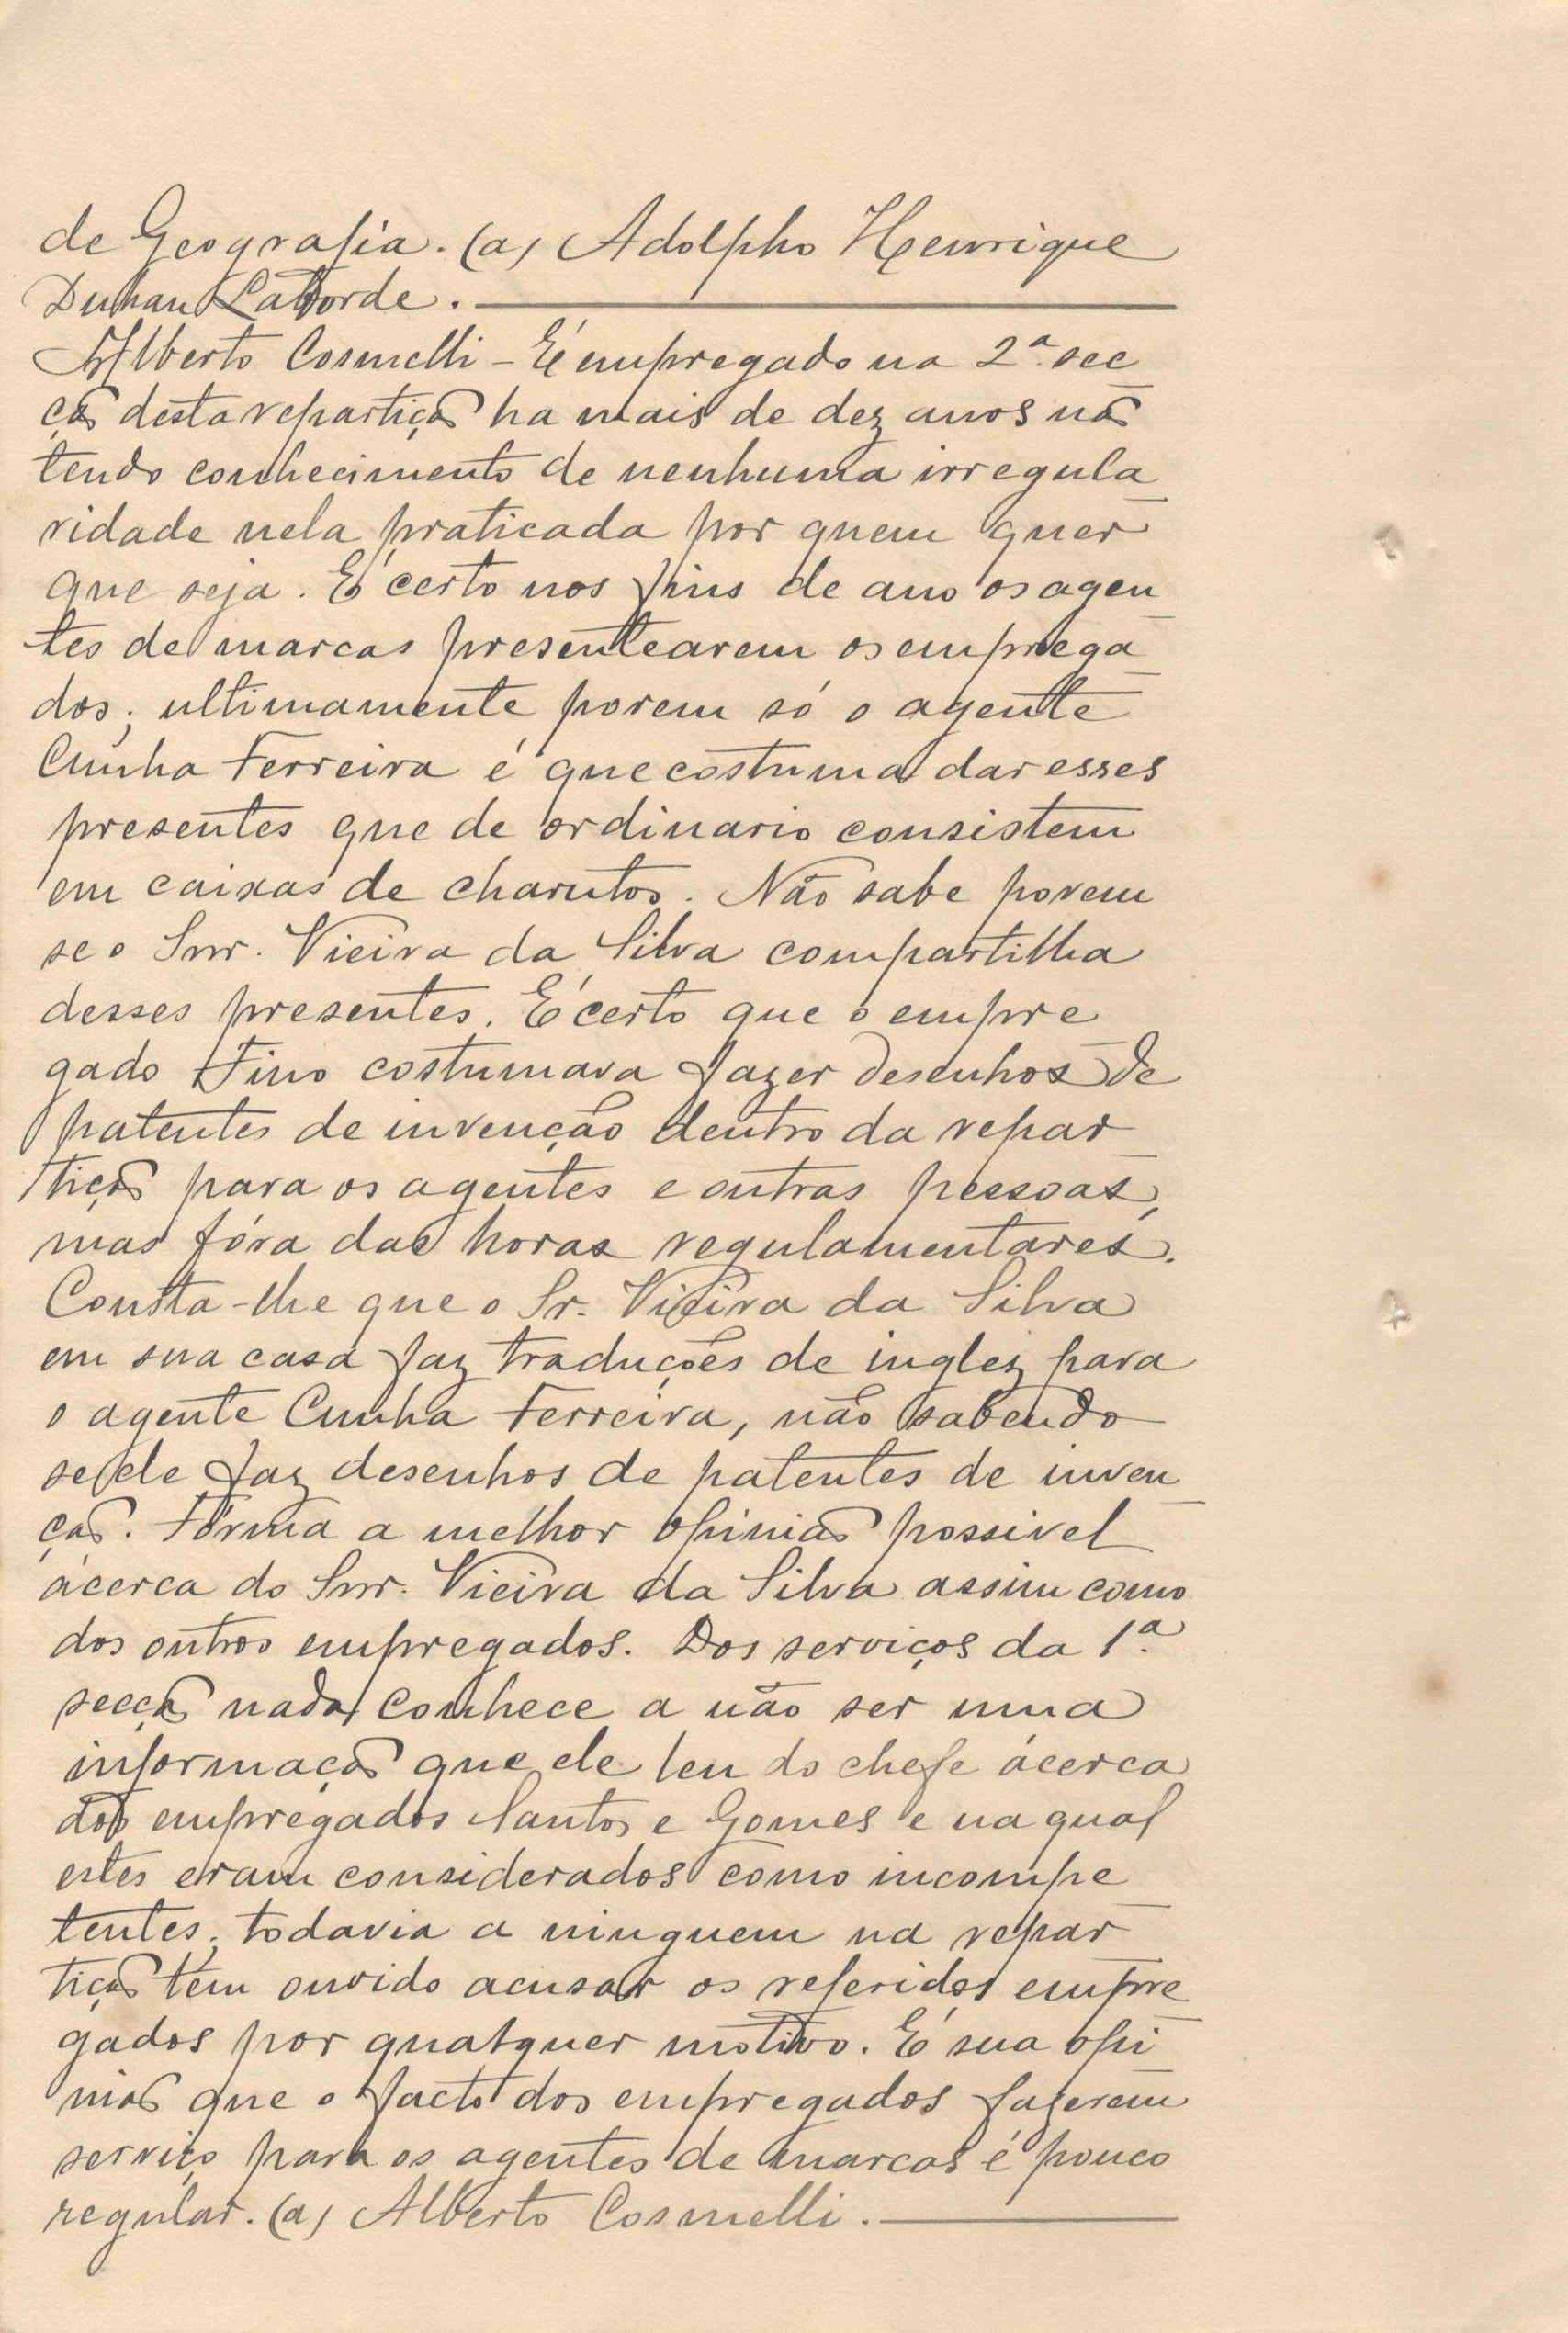 de Geografia. (a) Adolpho Henrique
Duhan Laborde.
Alberto Cosmelli – É empregado na 2.ª sec
ção desta repartição ha mais de dez anos não
tendo conhecimento de nenhuma irregula
ridade nela praticada por quem quer
que seja. É certo nos fins de ano os agen
tes de marcas presentearem os emprega
dos; ultimamente porem só o agente
Cunha Ferreira é que costuma dar esses
presentes que de ordinario consistem
em caixas de charutos. Não sabe porem
se o Snr. Vieira da Silva compartilha
desses presentes. É certo que o empre
gado Tino costumava fazer desenhos de
patentes de invenção dentro da repar
tição para os agentes e outras pessoas,
mas fóra das horas regulamentares.
Consta-lhe que o Sr. Vieira da Silva
em sua casa faz traduções de inglez para
o agente Cunha Ferreira, não sabendo
se ele faz desenhos de patentes de inven
ção. Fórma a melhor opinião possivel
ácerca do Snr. Vieira da Silva assim como
dos outros empregados. Dos serviços da 1.ª
secção nada conhece a não ser uma
informação que ele leu do chefe ácerca
dos empregados Santos e Gomes e na qual
estes eram considerados como incompe
tentes; todavia a ninguem na repar
tição tem ouvido acusar os referidos empre
gados por qualquer motivo. É sua opi
nião que o facto dos empregados fazerem
serviço para os agentes de marcas é pouco
regular. (a) Alberto Cosmelli.